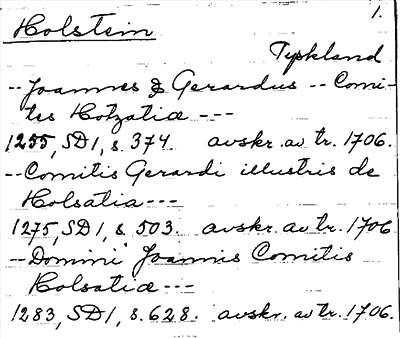 1.
Holstein
Tyskland
-- Joannes & Gerardus -- Comi-
tes Hotzatiæ ---
1255, SD1, s. 374. avskr. av tr. 1706.
-- Comitis Gerardi illustris de
Holsatia ---
1275, SD1, s. 503. avskr. av tr. 1706
-- Domini Joannis Comitis
Holsatiæ ---
1283, SD1, s. 628. avskr. av tr. 1706.